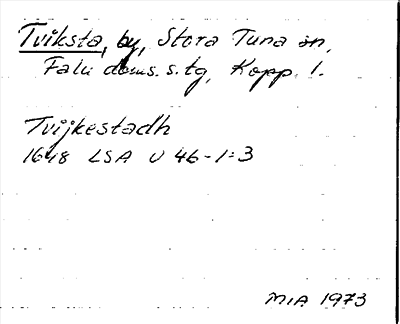 Tviksta, by, Stora Tuna sn,
Falu doms. s. tg, Kopp. l.
Tvijkestadh
1648 LSA U 46-1:3
MIA 1973